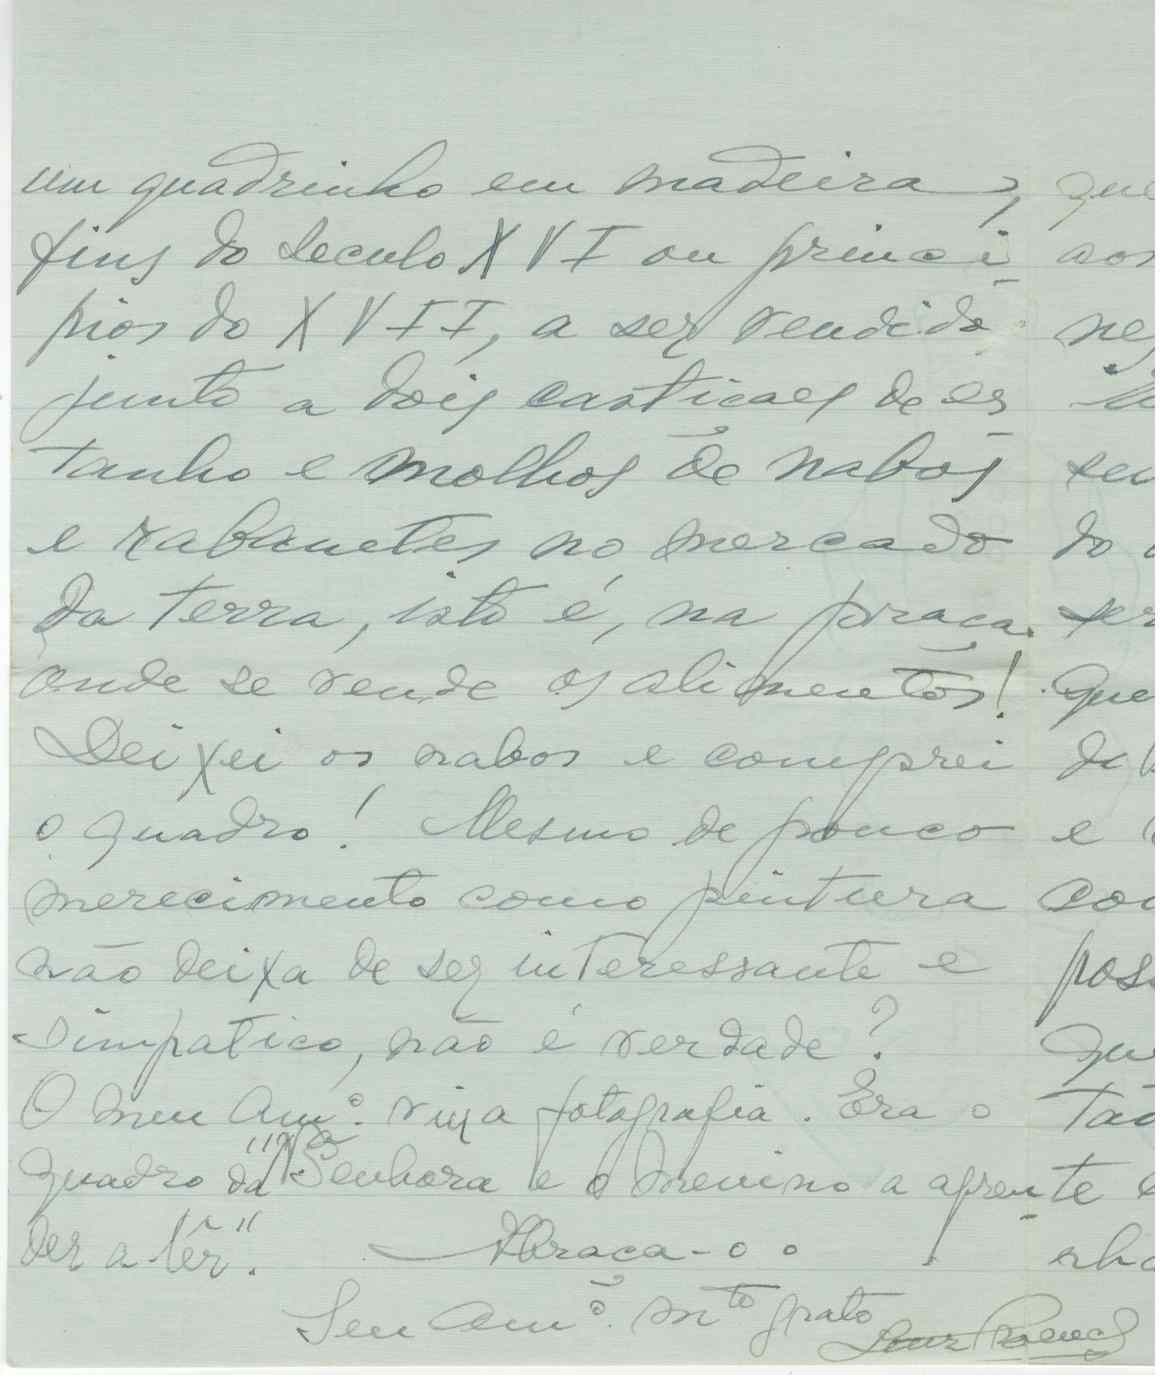 um quadrinho em madeira,
fins do seculo XVI ou princi-
pios do XVII, a ser vendido
junto a dois castiçaes de es-
tanho e molhos de nabos
e rabanetes no mercado
da terra, isto é, na praça
onde se vende os alimentos!
Deixei os nabos e comprei
o quadro! Mesmo de pouco
merecimento como pintura
não deixa de ser interessante e
simpatico, não é verdade?
O meu Amº. viu a fotografia. Era o
quadro da "Nª Senhora e o menino a apren-
der a lêr".
Abraça-o o
Seu Amº. mto grato
que
aos
do
Que
e